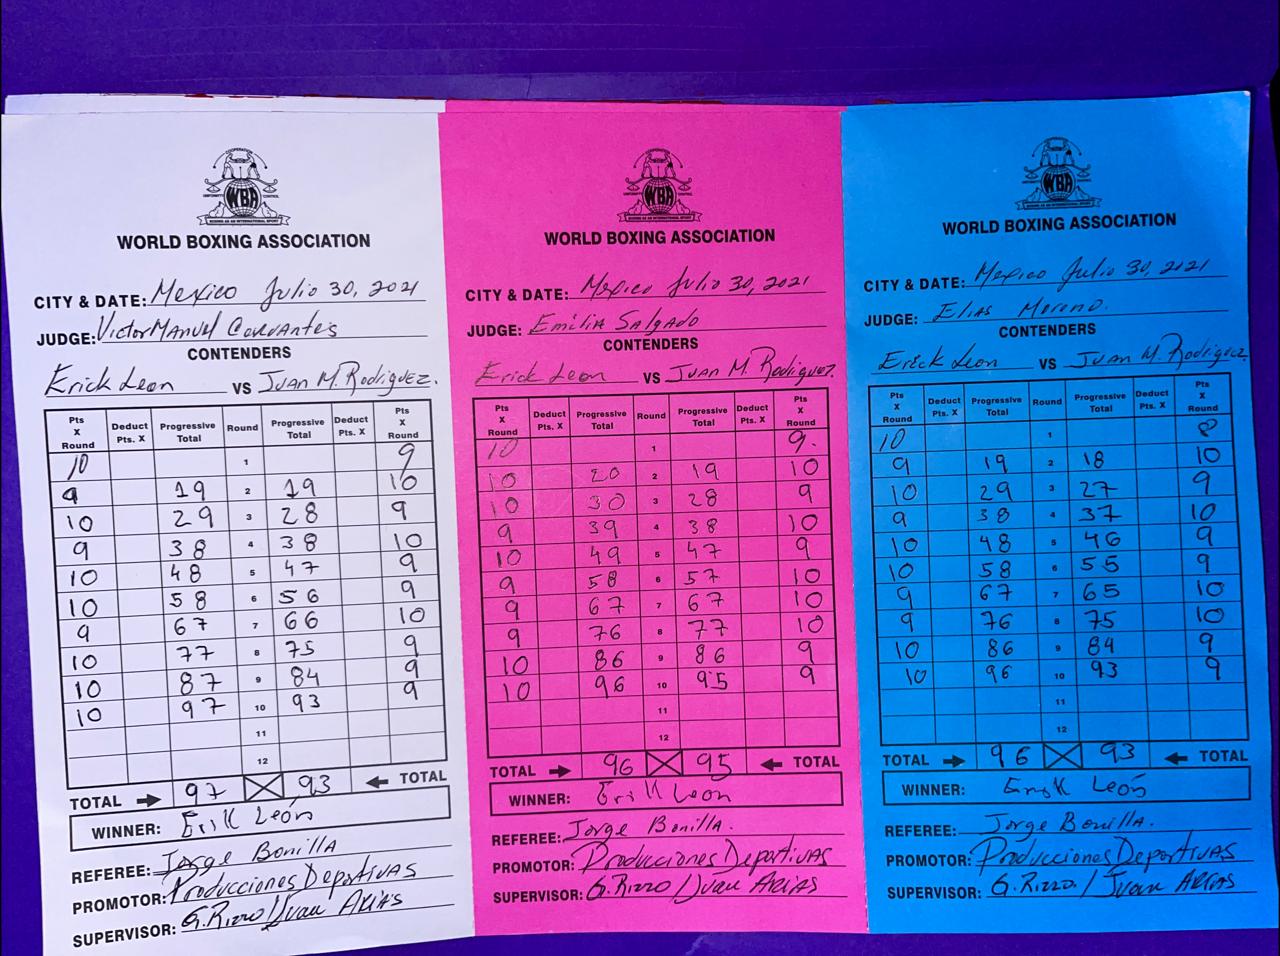 COOPERATION
UNIFORMITY WBA CONTROL
BOXING AS AN INTERNATIONAL SPORT
WORLD BOXING ASSOCIATION
CITY & DATE: Mexico Julio 30, 2021
JUDGE: Victor Manuel Cervantes
CONTENDERS
Erick Leon VS Juan M. Rodriguez.
Pts X Round Deduct Pts. X Progressive Total Round Progressive Total Deduct Pts. X Pts X Round
10 1 9
9 19 2 19 10
10 29 3 28 9
9 38 4 38 10
10 48 5 47 9
10 58 6 56 9
9 67 7 66 10
10 77 8 75 9
10 87 9 84 9
10 97 10 93 9
11
12
TOTAL 97 93 TOTAL
WINNER: Erik León
REFEREE: Jorge Bonilla
PROMOTOR: Producciones Deportivas
SUPERVISOR: G. Rizzo / Juan Arias
WBA
WORLD BOXING ASSOCIATION
CITY & DATE: Mexico Julio 30, 2021
JUDGE: Emilia Salgado
CONTENDERS
Erick Leon VS Juan M. Rodriguez.
Pts X Round Deduct Pts. X Progressive Total Round Progressive Total Deduct Pts. X Pts X Round
10 1 9.
10 20 2 19 10
10 30 3 28 9
9 39 4 38 10
10 49 5 47 9
9 58 6 57 10
9 67 7 67 10
9 76 8 77 10
10 86 9 86 9
10 96 10 95 9
11
12
TOTAL 96 95 TOTAL
WINNER: Erik León
REFEREE: Jorge Bonilla.
PROMOTOR: Producciones Deportivas
SUPERVISOR: G. Rizzo / Juan Arias
WBA
WORLD BOXING ASSOCIATION
CITY & DATE: Mexico Julio 30, 2021
JUDGE: Elias Moreno.
CONTENDERS
Erick Leon VS Juan M. Rodriguez
Pts X Round Deduct Pts. X Progressive Total Round Progressive Total Deduct Pts. X Pts X Round
10 1 8
9 19 2 18 10
10 29 3 27 9
9 38 4 37 10
10 48 5 46 9
10 58 6 55 9
9 67 7 65 10
9 76 8 75 10
10 86 9 84 9
10 96 10 93 9
11
12
TOTAL 96 93 TOTAL
WINNER: Erik León
REFEREE: Jorge Bonilla.
PROMOTOR: Producciones Deportivas
SUPERVISOR: G. Rizzo. / Juan Arias